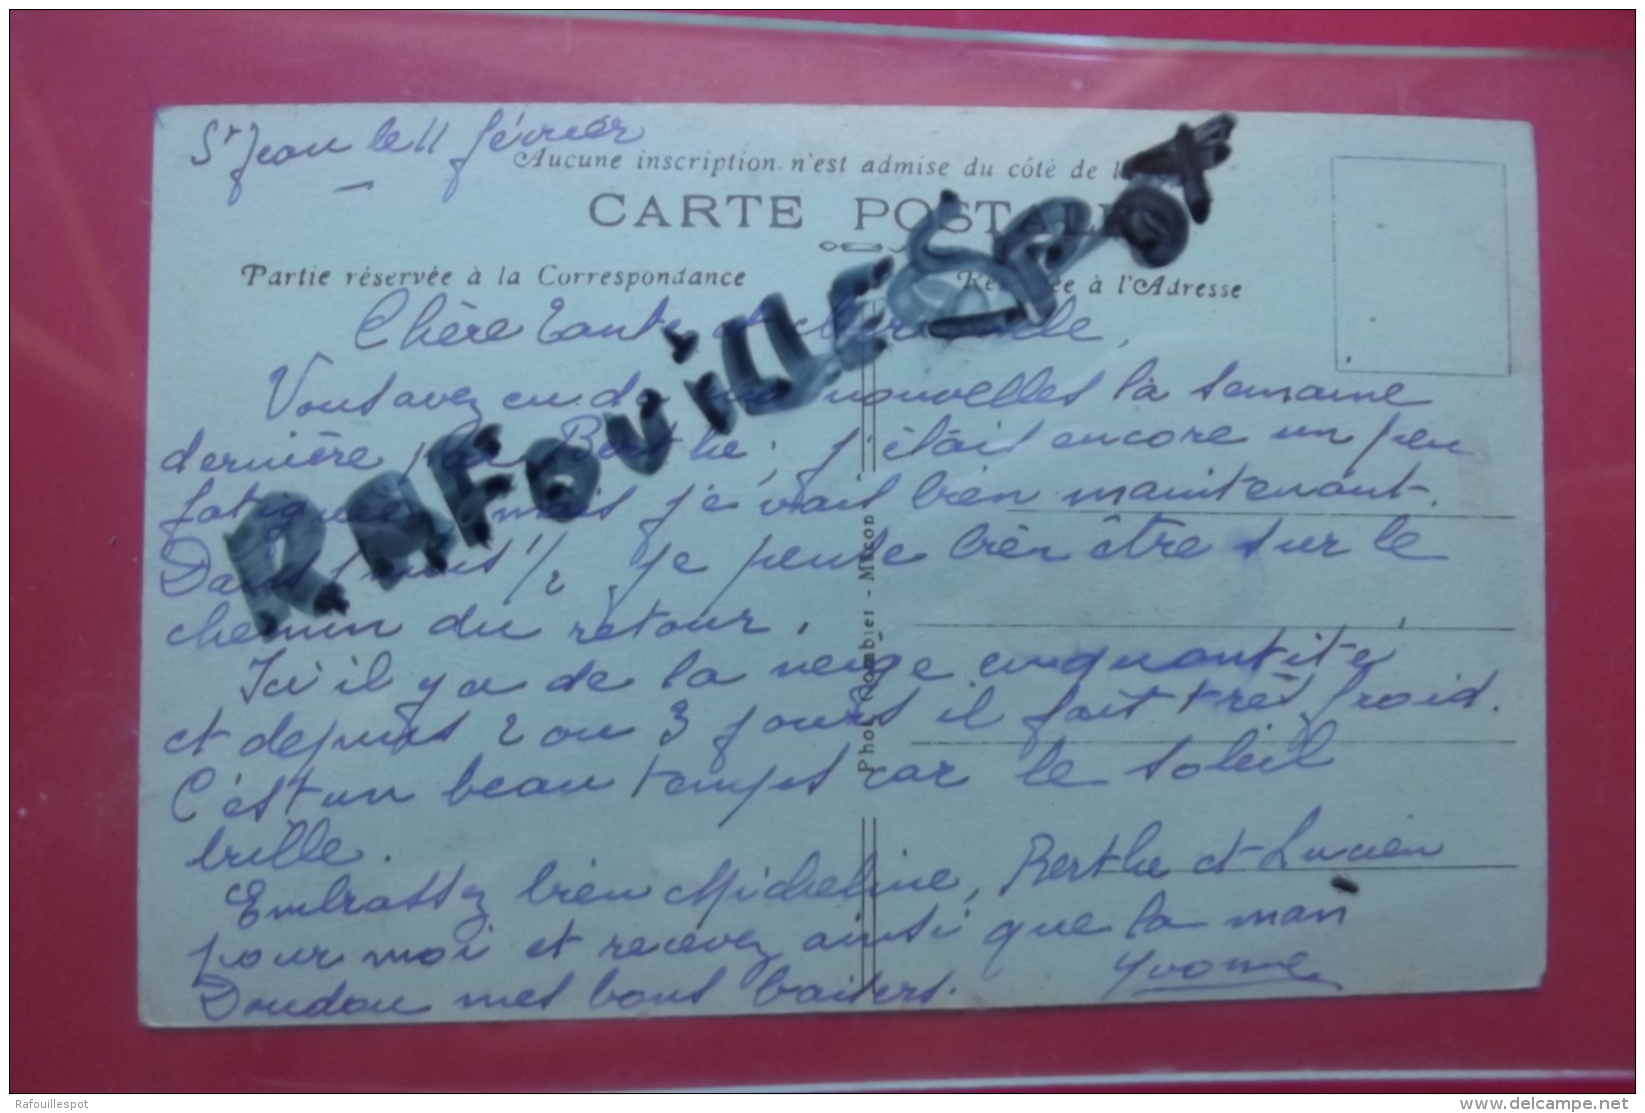 St Jean le 11 février
Aucune inscription n'est admise du côté de
CARTE POSTALE
Partie réservée à la Correspondance
Réservée à l'Adresse
RAFOUILLESPOT
Chère Tante et cher oncle,
Vous avez eu de mes nouvelles la semaine
dernière par Berthe; j'étais encore un peu
fatiguée, mais je vais bien maintenant.
Dans 1 mois 1/2 je pense bien être sur le
chemin du retour.
Ici il y a de la neige en quantité
et depuis 2 ou 3 jours il fait très froid.
C'est un beau temps car le soleil
brille.
Embrassez bien Micheline, Berthe et Lucien
pour moi et recevez ainsi que la man
Doudou mes bons baisers.
Yvonne
Phot. Combier - Macon
Rafouillespot
www.delcampe.net